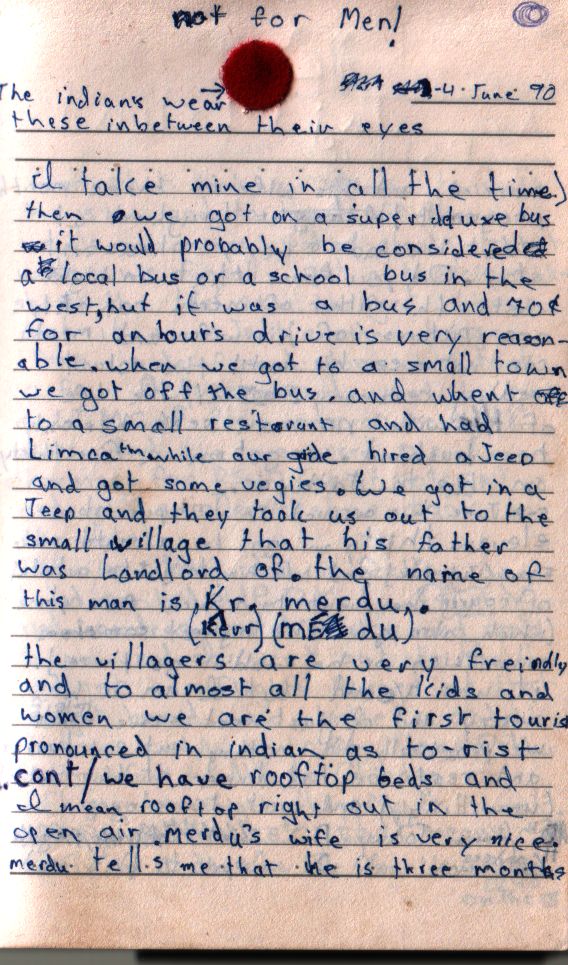 not for Men!
The indians wear →
-4. June 90
these inbetween their eyes
I take mine in all the time.)
then we got on a super deluxe bus
it would probably be considered
a local bus or a school bus in the
west, but it was a bus and 70¢
for an hour's drive is very reason-
able. when we got to a small town
we got off the bus. and whent
to a small restorant and had
Limca while our gide hired a Jeep
and got some vegies. We got in a
Jeep and they took us out to the
small village that his father
was Landlord of. the name of
this man is, Kr. merdu,.
(Kevr) (m du)
the villagers are very freindly
and to almost all the kids and
women we are the first tourist
pronounced in indian as to-rist
.cont/we have rooftop beds and
I mean rooftop right out in the
open air. Merdu's wife is very nice.
merdu. tells me that he is three months